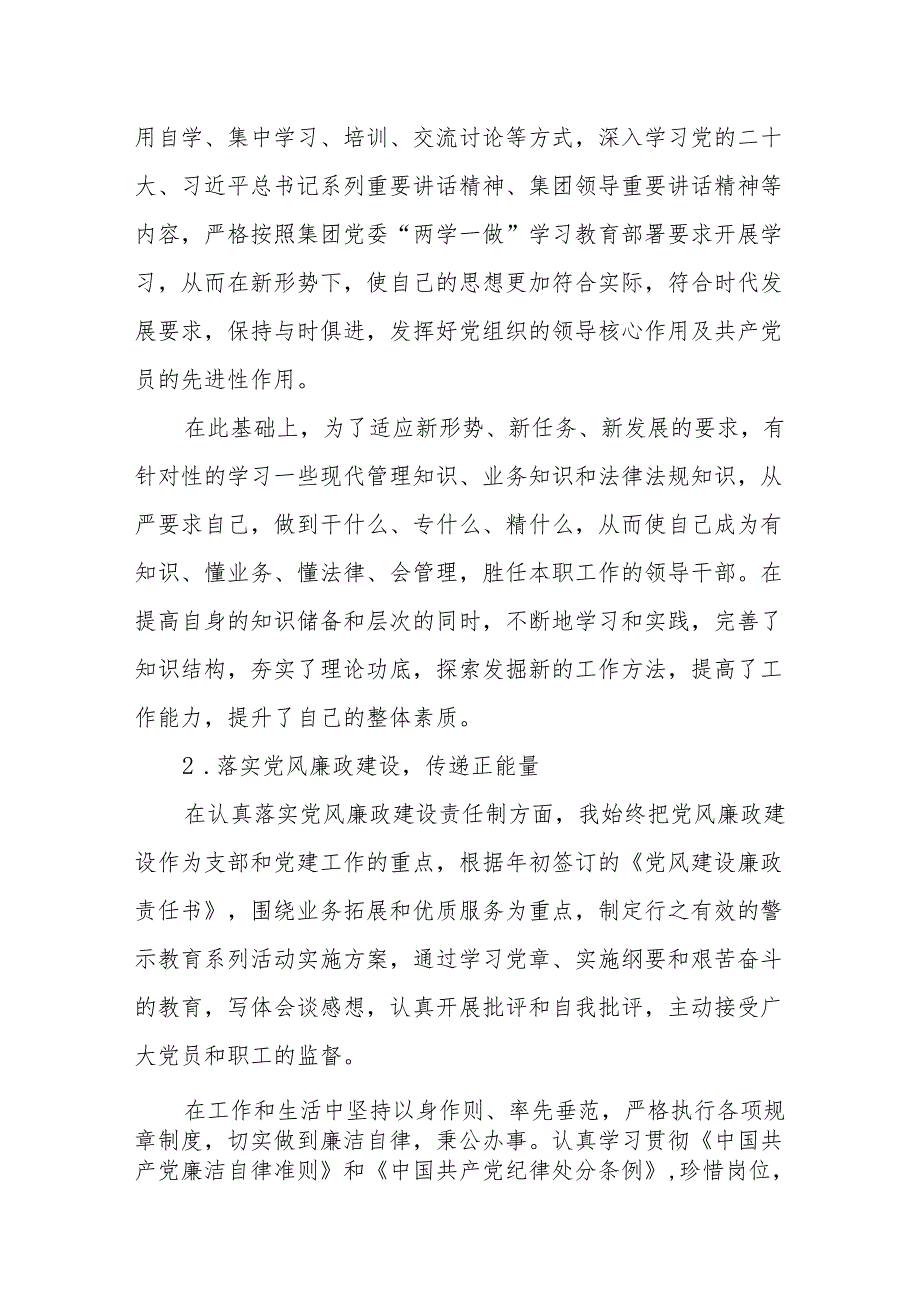 用自学、集中学习、培训、交流讨论等方式，深入学习党的二十
大、习近平总书记系列重要讲话精神、集团领导重要讲话精神等
内容，严格按照集团党委“两学一做”学习教育部署要求开展学
习，从而在新形势下，使自己的思想更加符合实际，符合时代发
展要求，保持与时俱进，发挥好党组织的领导核心作用及共产党
员的先进性作用。
在此基础上，为了适应新形势、新任务、新发展的要求，有
针对性的学习一些现代管理知识、业务知识和法律法规知识，从
严要求自己，做到干什么、专什么、精什么，从而使自己成为有
知识、懂业务、懂法律、会管理，胜任本职工作的领导干部。在
提高自身的知识储备和层次的同时，不断地学习和实践，完善了
知识结构，夯实了理论功底，探索发掘新的工作方法，提高了工
作能力，提升了自己的整体素质。
2 .落实党风廉政建设，传递正能量
在认真落实党风廉政建设责任制方面，我始终把党风廉政建
设作为支部和党建工作的重点，根据年初签订的《党风建设廉政
责任书》，围绕业务拓展和优质服务为重点，制定行之有效的警
示教育系列活动实施方案，通过学习党章、实施纲要和艰苦奋斗
的教育，写体会谈感想，认真开展批评和自我批评，主动接受广
大党员和职工的监督。
在工作和生活中坚持以身作则、率先垂范，严格执行各项规
章制度，切实做到廉洁自律，秉公办事。认真学习贯彻《中国共
产党廉洁自律准则》和《中国共产党纪律处分条例》,珍惜岗位，